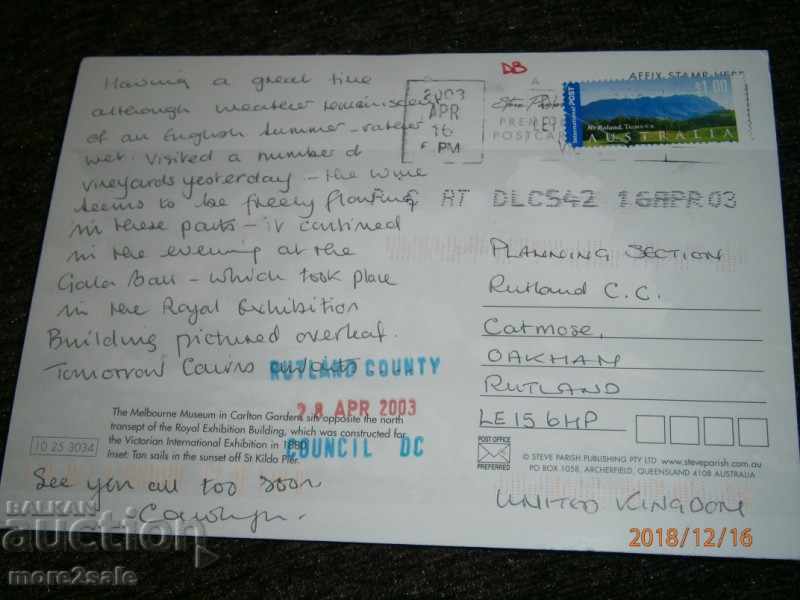 Having a great time
although weather reminiscent
of an English Summer - rather
wet. Visited a number of
vineyards yesterday - the wine
seems to be freely flowing
in these parts - it continued
in the evening at the
Gala Ball - which took place
in the Royal Exhibition
Building pictured overleaf.
Tomorrow Cairns awaits
The Melbourne Museum in Carlton Gardens sits opposite the north
transept of the Royal Exhibition Building, which was constructed for
the Victorian International Exhibition in 1880.
Inset: Tan sails in the sunset off St Kilda Pier.
10 25 3034
See you all too soon
DB
AFFIX STAMP HERE
2003
APR
16
PM
PREM
POSTCAR
International POST
$1.00
Mt Roland, Tasmania
AUSTRALIA
AT DLC542 16APR03
PLANNING SECTION
Rutland C.C.
Catmose,
OAKHAM
RUTLAND
LE15 6HP
RUTLAND COUNTY
28 APR 2003
COUNCIL DC
POST OFFICE
PREFERRED
© STEVE PARISH PUBLISHING PTY LTD www.steveparish.com.au
PO BOX 1058, ARCHERFIELD, QUEENSLAND 4108 AUSTRALIA
UNITED KINGDOM
2018/12/16
BALKAN
auction
more2sale